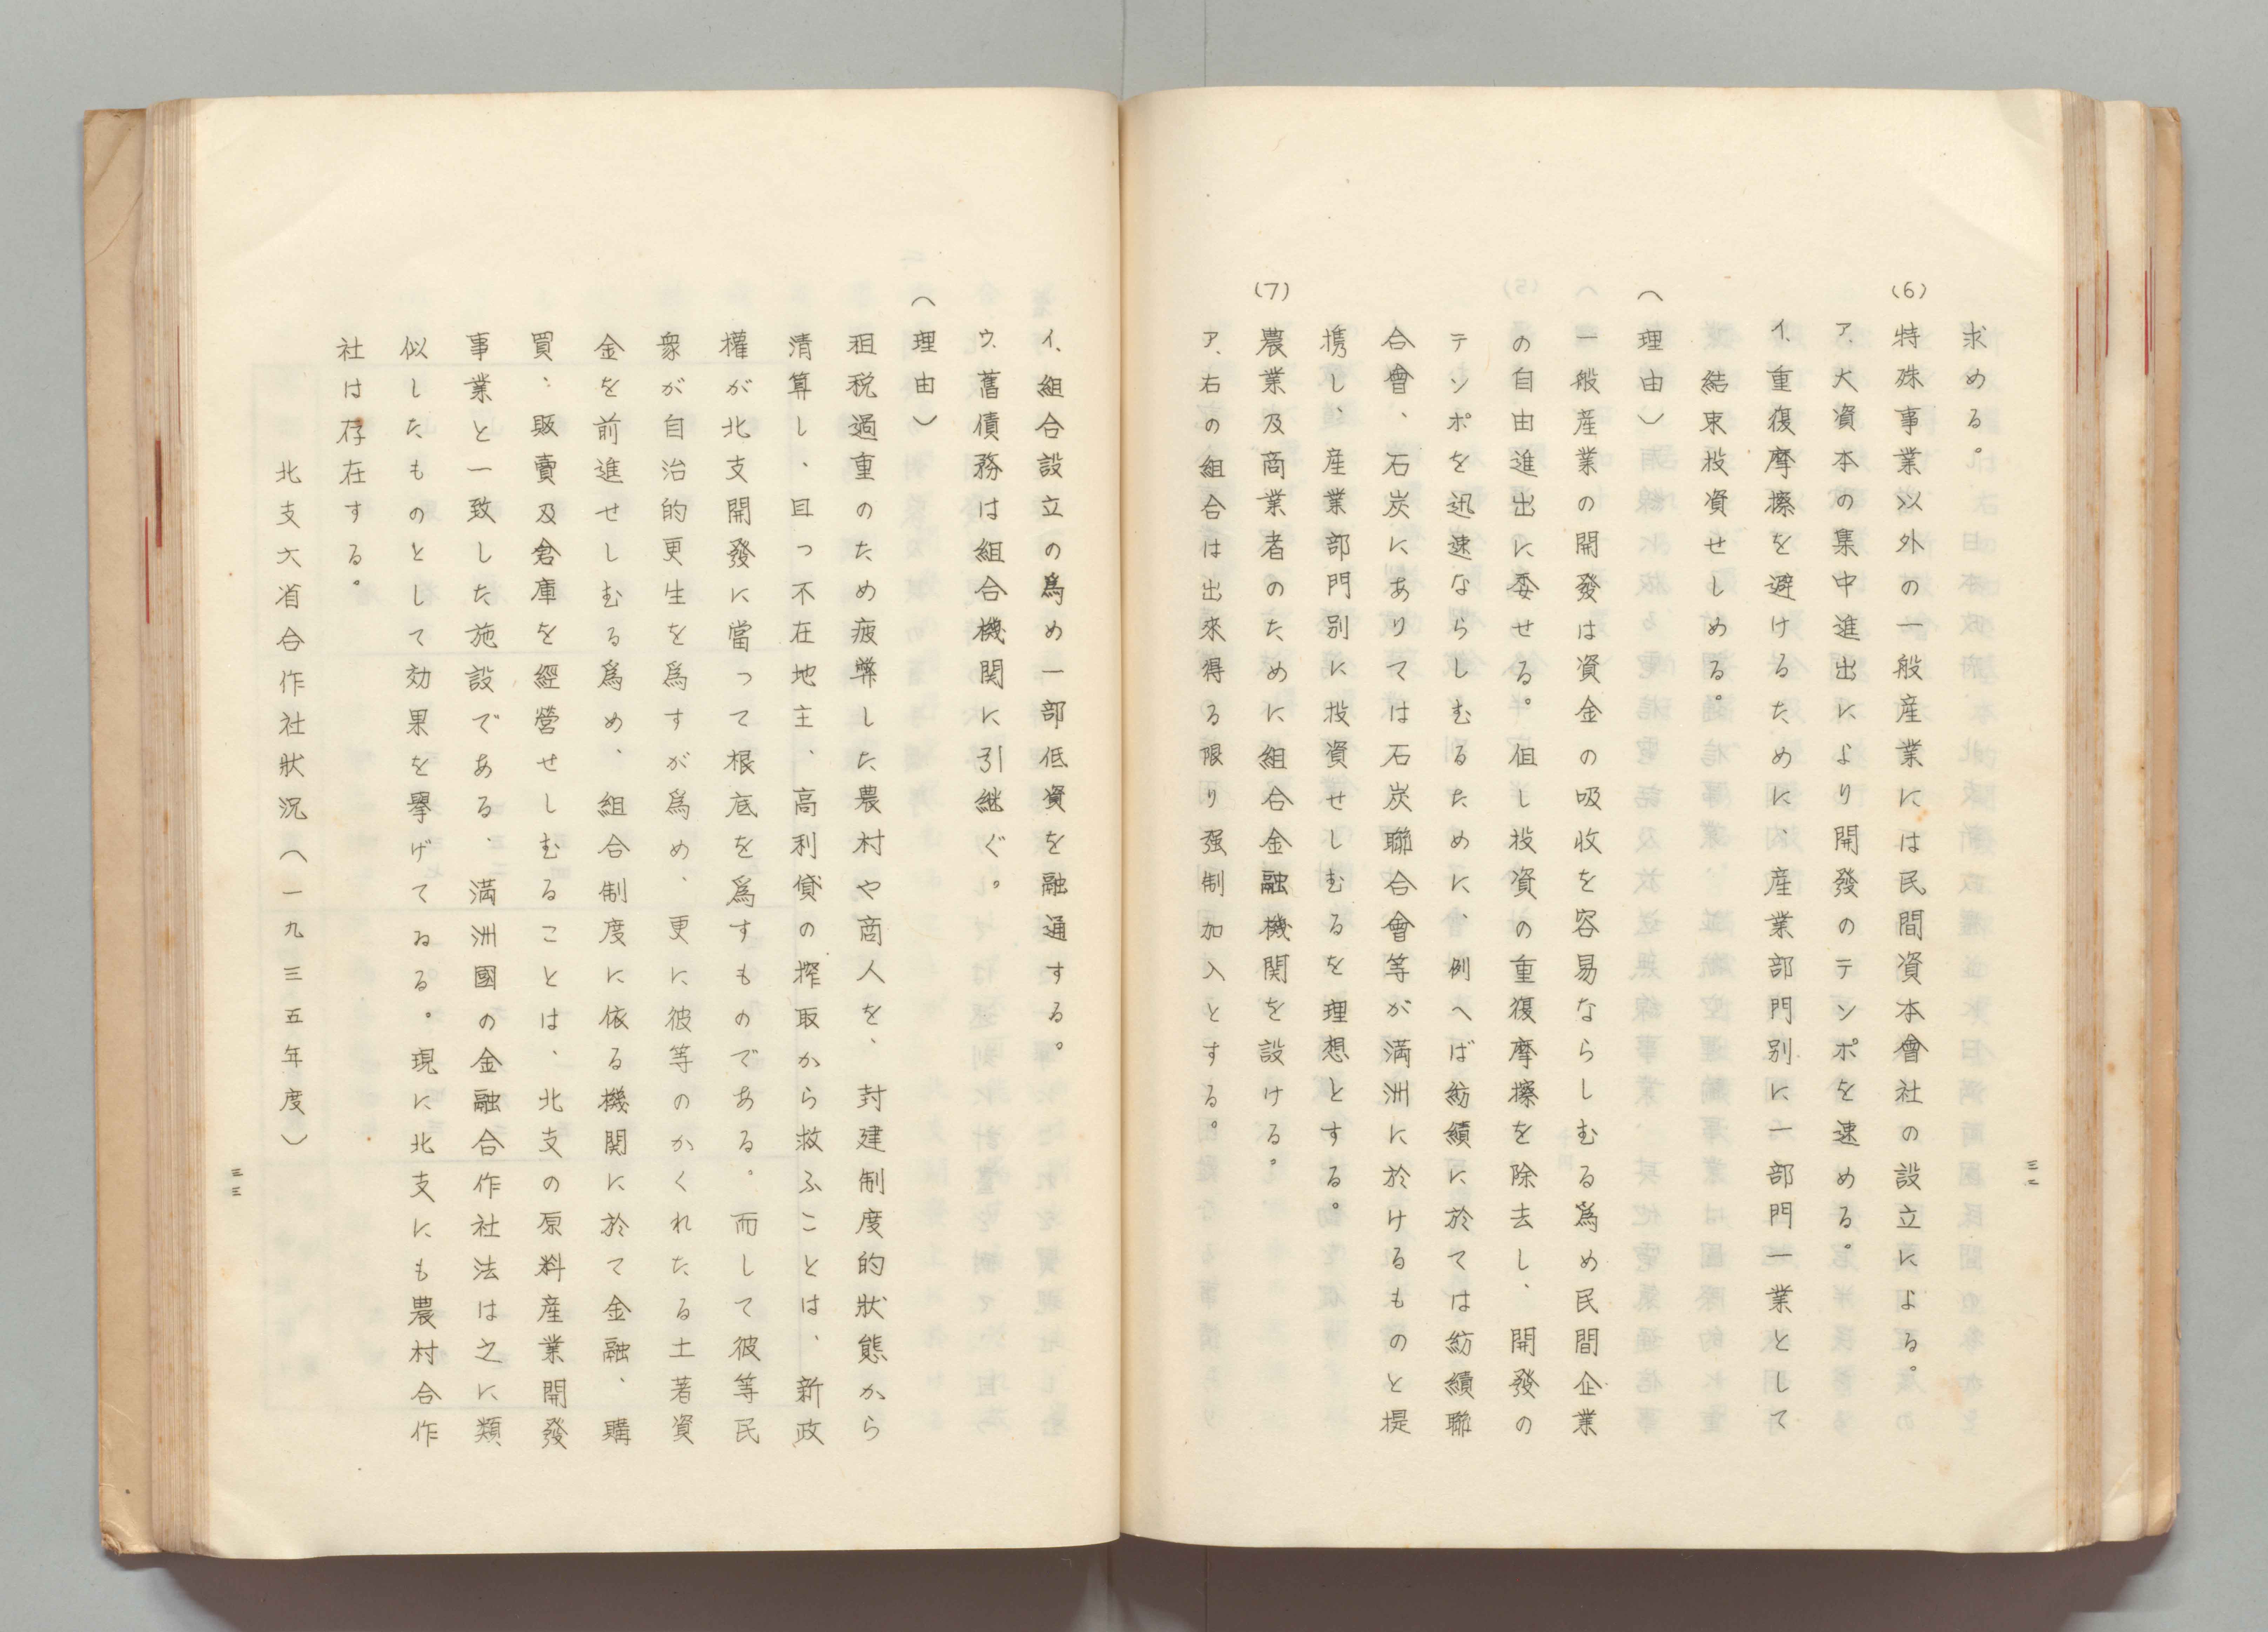 求める。
(6) 特殊事業以外の一般産業には民間資本會社の設立による。
ア、大資本の集中進出により開發のテンポを速める。
イ、重復摩擦を避けるために、産業部門別に一部門一業として
結束投資せしめる。
（理由）
一般産業の開發は資金の吸收を容易ならしむる爲め民間企業
の自由進出に委せる。但し投資の重復摩擦を除去し、開發の
テンポを迅速ならしむるために、例へば紡績に於ては紡績聯
合會、石炭にありては石炭聯合會等が満洲に於けるものと提
携し、産業部門別に投資せしむるを理想とする。
(7) 農業及商業者のために組合金融機関を設ける。
ア、右の組合は出來得る限り强制加入とする。
三二
イ、組合設立の爲め一部低資を融通する。
ウ、舊債務は組合機関に引継ぐ。
（理由）
租税過重のため疲弊した農村や商人を、封建制度的狀態から
清算し、且つ不在地主、高利貸の搾取から救ふことは、新政
權が北支開發に當って根底を爲すものである。而して彼等民
衆が自治的更生を爲すが爲め、更に彼等のかくれたる土著資
金を前進せしむる爲め、組合制度に依る機関に於て金融、購
買、販賣及倉庫を經營せしむることは、北支の原料産業開發
事業と一致した施設である、満洲國の金融合作社法は之に類
似したものとして効果を擧げてゐる。現に北支にも農村合作
社は存在する。
北支六省合作社狀況（一九三五年度）
三三